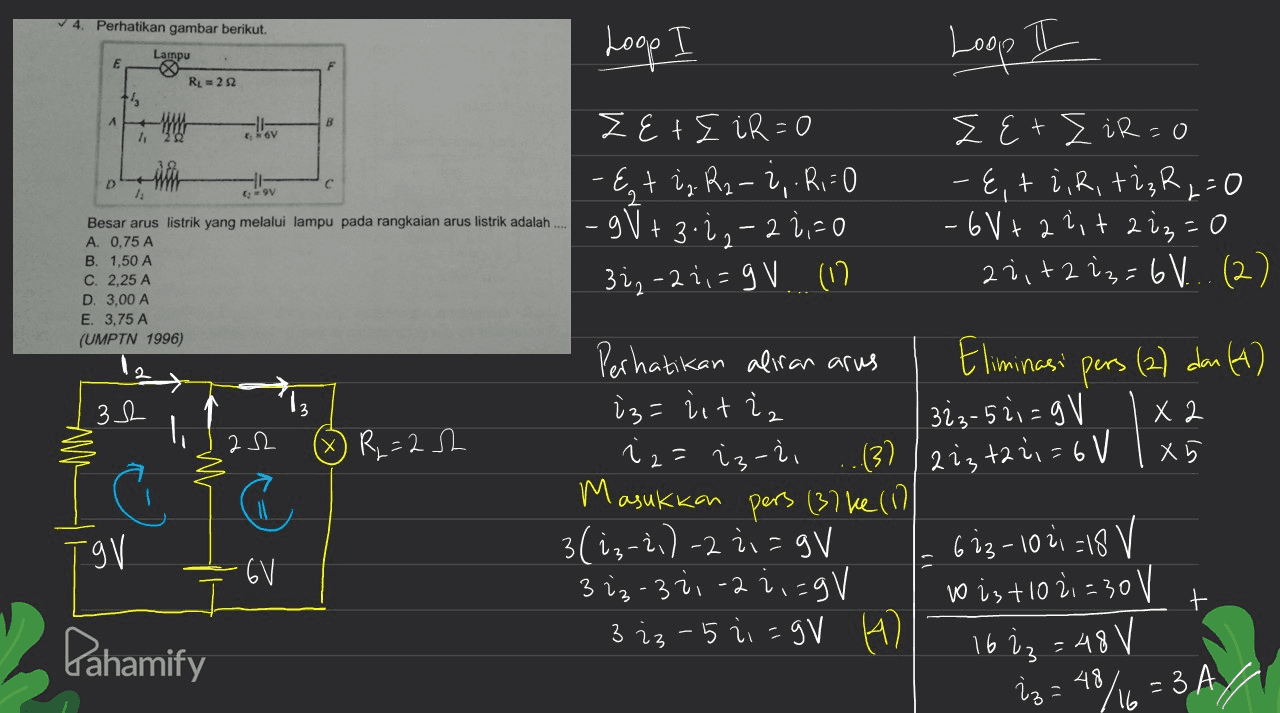 4. Perhatikan gambar berikut.
Lampu
E
F
R_L = 2 Ω
I₃
A
B
I₁ 2 Ω
ε₁ = 6V
3 Ω
D
C
I₂
ε₂ = 9V
Besar arus listrik yang melalui lampu pada rangkaian arus listrik adalah ....
A. 0,75 A
B. 1,50 A
C. 2,25 A
D. 3,00 A
E. 3,75 A
(UMPTN 1996)
I₂
3Ω
I₁
2Ω
I₃
R_L = 2 Ω
I
II
9V
6V
Pahamify
Loop I
Σ ε + Σ iR = 0
- ε₂ + i₂.R₂ - i₁.R₁ = 0
- 9V + 3.i₂ - 2 i₁ = 0
3i₂ - 2i₁ = 9V ... (1)
Loop II
Σ ε + Σ iR = 0
- ε₁ + i₁R₁ + i₃R_L = 0
- 6V + 2 i₁ + 2i₃ = 0
2i₁ + 2i₃ = 6V ... (2)
Perhatikan aliran arus
i₃ = i₁ + i₂
i₂ = i₃ - i₁ ...(3)
Masukkan pers (3) ke (1)
3(i₃ - i₁) - 2 i₁ = 9V
3 i₃ - 3 i₁ - 2 i₁ = 9V
3 i₃ - 5 i₁ = 9V (4)
Eliminasi pers (2) dan (4)
3i₃ - 5i₁ = 9V | x 2
2i₃ + 2i₁ = 6V | x 5
= 6i₃ - 10i₁ = 18 V
10 i₃ + 10 i₁ = 30 V +
16 i₃ = 48 V
i₃ = 48/16 = 3 A //